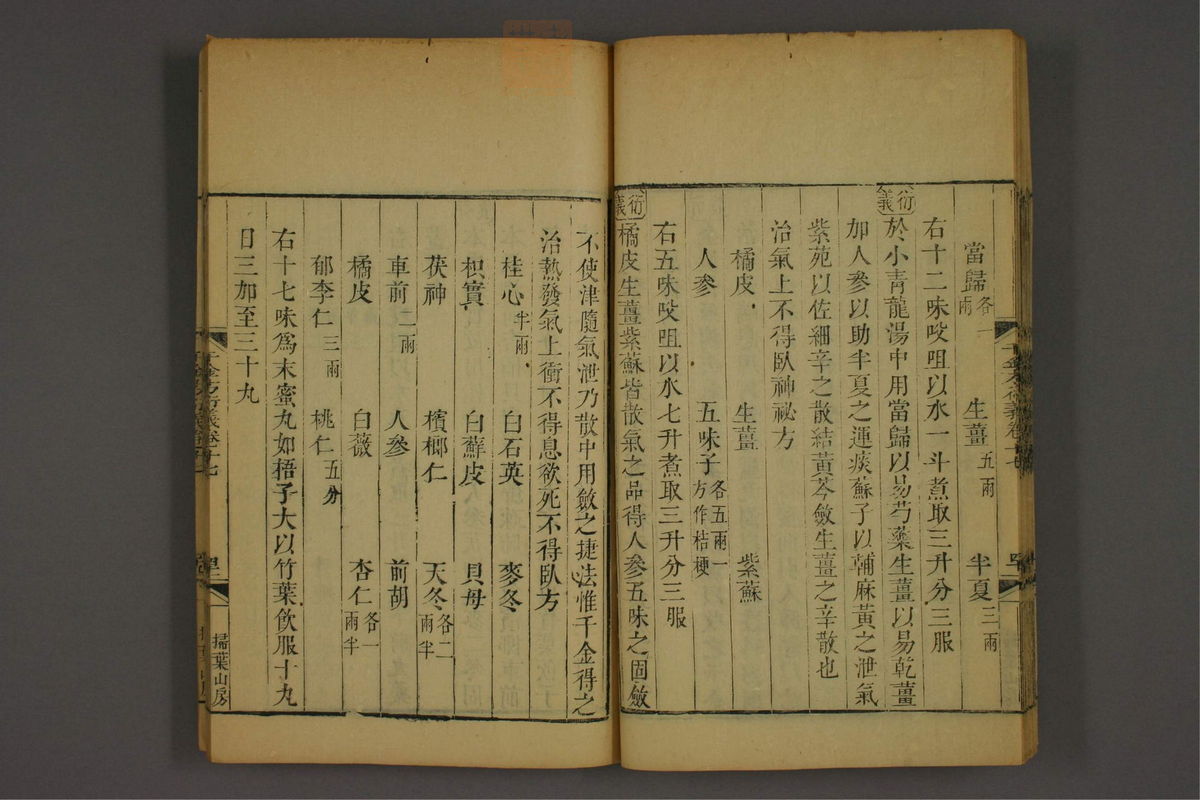 當歸各一兩 生薑五兩 半夏三兩
右十二味㕮咀以水一斗煮取三升分三服
衍義 於小青龍湯中用當歸以易芍藥生薑以易乾薑
加人參以助半夏之運痰蘇子以輔麻黃之泄氣
紫菀以佐細辛之散結黃芩斂生薑之辛散也
治氣上不得臥神祕方
橘皮 生薑 紫蘇
人參 五味子各五兩一方作桔梗
右五味㕮咀以水七升煮取三升分三服
衍義 橘皮生薑紫蘇皆散氣之品得人參五味之固斂
不使津隨氣泄乃散中用斂之捷法惟千金得之
治熱發氣上衝不得息欲死不得臥方
桂心半兩 白石英 麥冬
枳實 白蘚皮 貝母
茯神 檳榔仁 天冬各二兩半
車前二兩 人參 前胡
橘皮 白薇 杏仁各一兩半
郁李仁三兩 桃仁五分
右十七味爲末蜜丸如梧子大以竹葉飲服十丸
日三加至三十丸
千金方衍義卷十七
掃葉山房